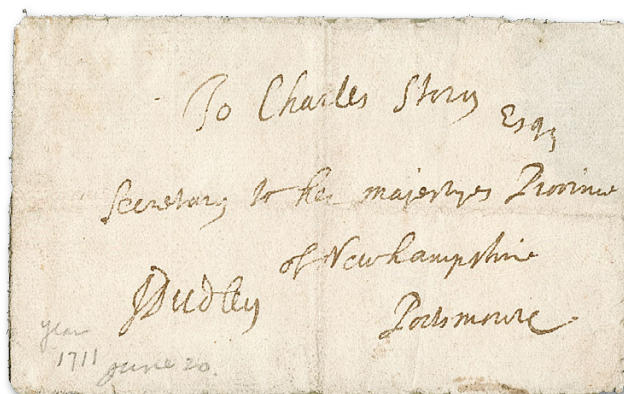 To Charles Story
Esqr
Secretary to her majestyes Province
of Newhampshire
JDudley
Portsmouth
year
1711 June 20.